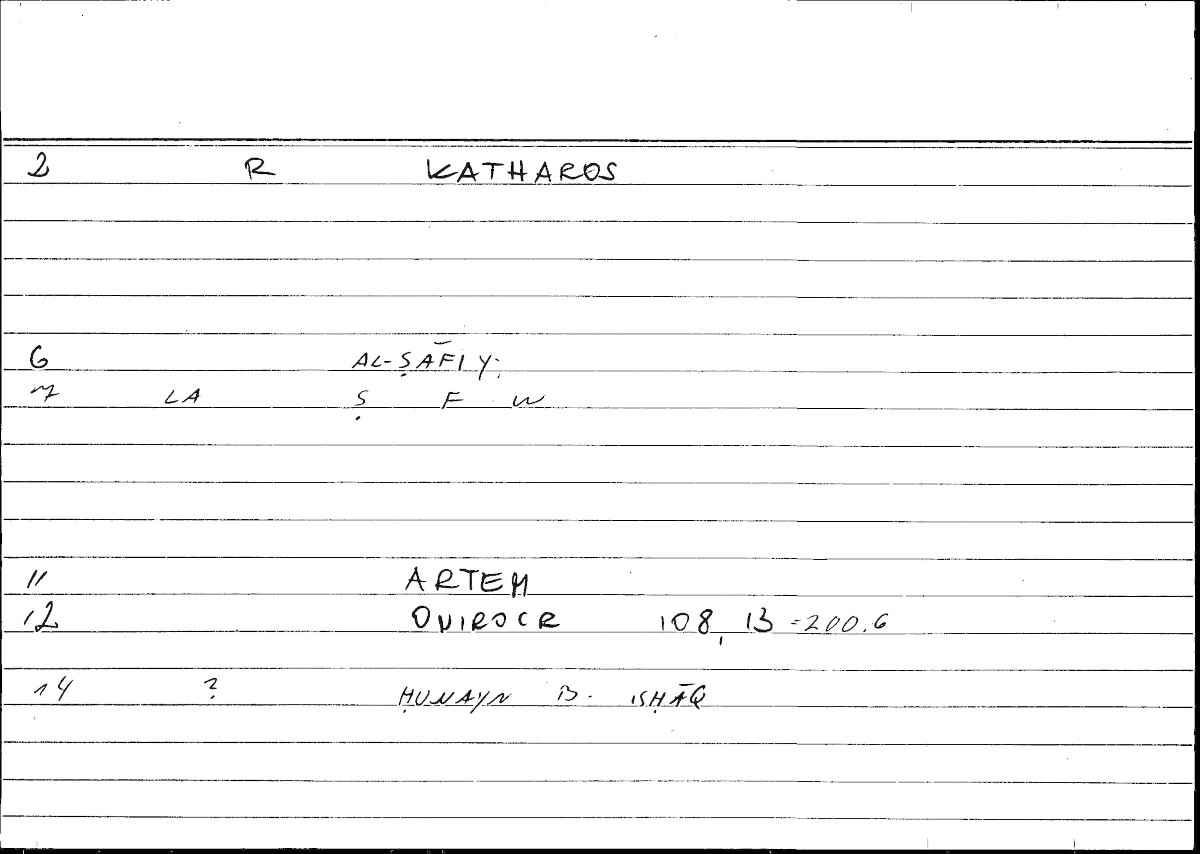 2 R KATHAROS
6 AL-ṢĀFIY.
7 LA Ṣ F W
11 ARTEM
12 ONIROCR 108, 13-200.6
14 ? ḤUNAYN B. ISḤĀQ